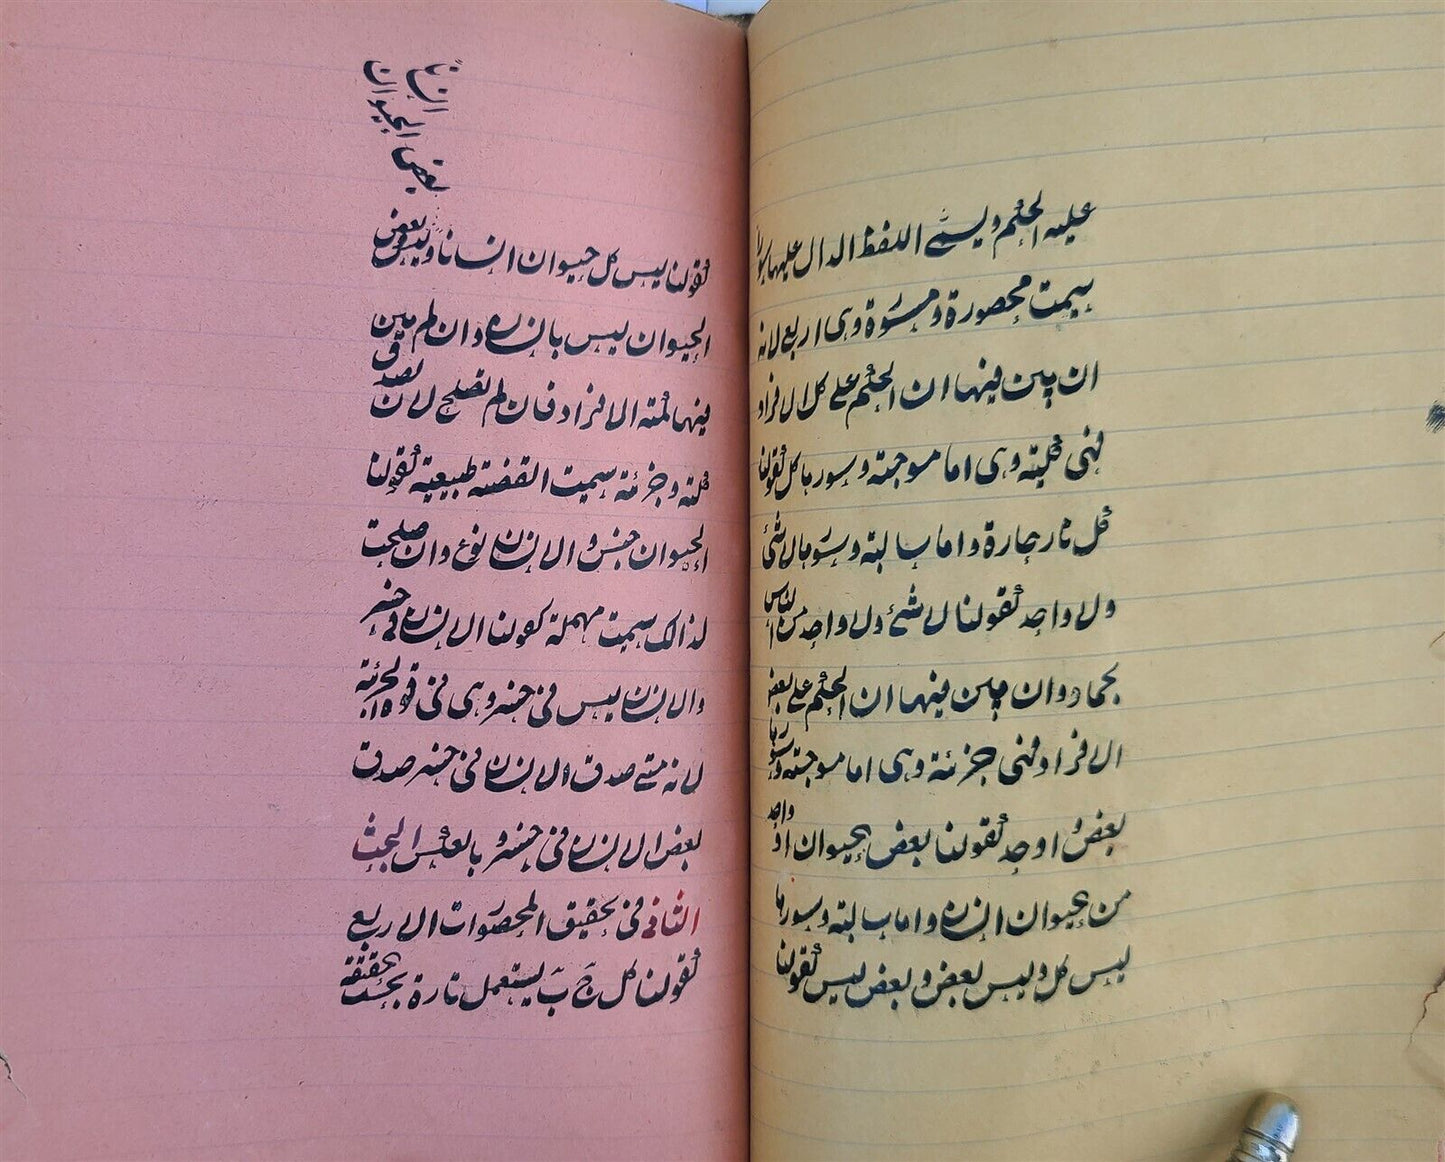 عليه الحكم ويسمى اللفظ الدال عليها سورا
سميت محصورة ومسورة وهى اربع لانه
ان بين فيها ان الحكم على كل الافراد
فهى كلية وهى اما موجبة وسورها كل كقولنا
كل نار حارة واما سالبة وسورها لا شئ
ولا واحد كقولنا لا شئ ولا واحد من الناس
بجماد وان بين فيها ان الحكم على بعض
الافراد فهى جزئية وهى اما موجبة وسورها
بعض وواحد كقولنا بعض الحيوان او واحد
من الحيوان انسان واما سالبة وسورها
ليس كل وليس بعض وبعض ليس كقولنا
كقولنا ليس كل حيوان انسانا وليس بعض
الحيوان ليس بانسان وان لم يبين
فيها كمية الافراد فان لم تصلح لان تصدق
كلية وجزئية سميت القضية طبيعية كقولنا
الحيوان جنس والانسان نوع وان صلحت
لذالك سميت مهملة كقولنا الانسان فى خسر
والانسان ليس فى خسر وهى فى قوة الجزئية
لانه متى صدق الانسان فى خسر صدق
بعض الانسان فى خسر وبالعكس البحث
الثانى فى تحقيق المحصورات الاربع
كقولنا كل ج ب يستعمل تارة بحسب الحقيقة
بعض الحيوان